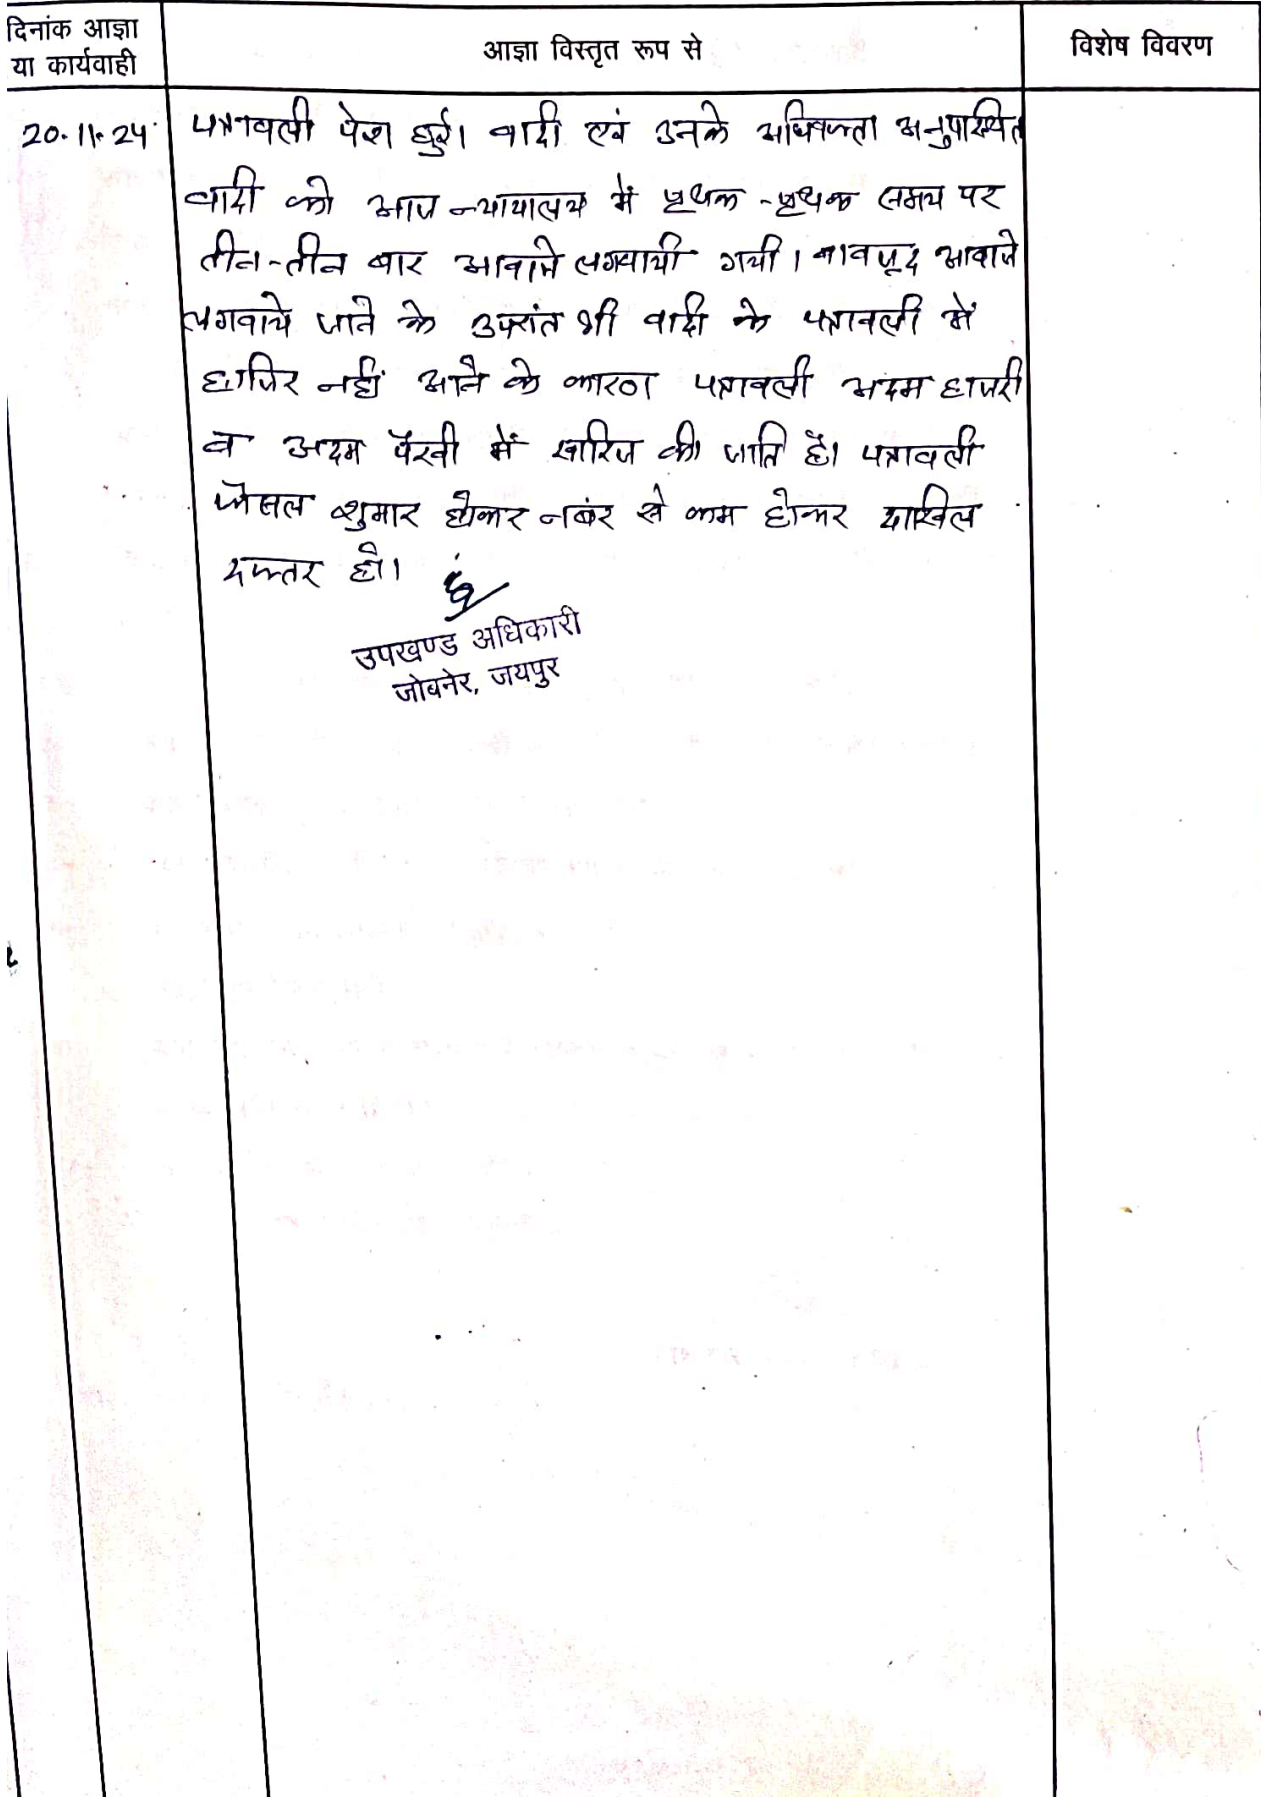 दिनांक आज्ञा
या कार्यवाही
आज्ञा विस्तृत रूप से
विशेष विवरण
20.11.24
पत्रावली पेश हुई। वादी एवं उनके अधिवक्ता अनुपास्थित
वादी को आज न्यायालय में पृथक-पृथक समय पर
तीन-तीन बार आवाजे लगवायी गयी। बावजूद आवाजे
लगवाये जाने के उपरांत भी वादी के पत्रावली में
हाजिर नहीं आने के कारण पत्रावली अदम हाजरी
व अदम पैरवी में खारिज की जाति है। पत्रावली
फैसल शुमार होकर नबंर से कम होकर दाखिल
दफ्तर हो।
उपखण्ड अधिकारी
जोबनेर, जयपुर